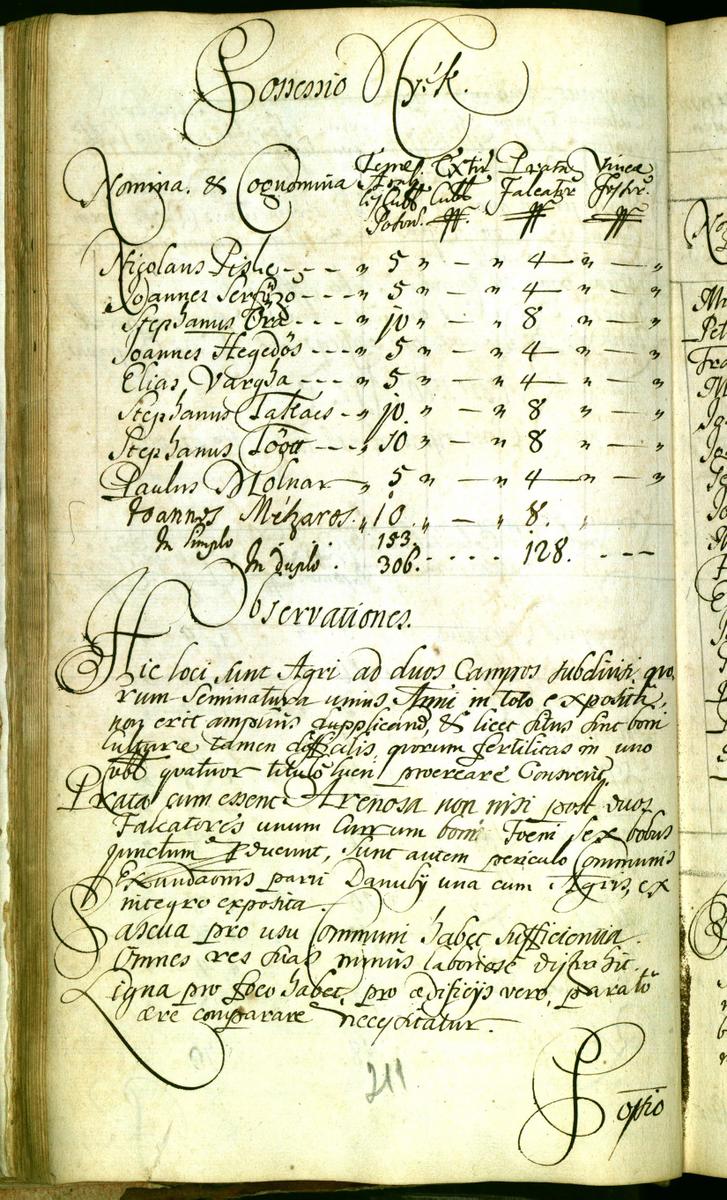 Possessio Nyék.
Nomina. & Cognomina
Extir. Cub.
Prata Falcator.
Vinea Fossor.
Nicolaus Piske - - - " 5 " — " 4 — " — "
Joannes Serfözö - - - " 5 " — " 4 — " — "
Stephanus - - - " 10 " — " 8 " — "
Joannes Hegedös - - - " 5 " — " 4 — " — "
Elias Vargha - - - " 5 " — " 4 — " — "
Stephanus Takacs - " 10 " — " 8 " — "
Stephanus Töött - - " 10 " — " 8 " — "
Paulus Molnar " 5 " — " 4 — " — "
Joannes Mészaros " 10 " — " 8. "
In Simplo 153.
In Duplo . 306. - - - - 128. - - -
Observationes.
Hic loci sunt Agri ad duos Campos subdivisi, quo-
rum seminatura unius Anni in toto exposita,
non erit amplius & licet situs sint boni
culturæ tamen difficilis, quorum fertilitas in uno
quatuor procreare Consvevit.
Prata cum essent Arenosa non nisi post duos
Falcatores unum Currum boni Foeni sex bobus
junctum producunt, sunt autem periculo Communis
Exundationis parvi Danubij una cum Agris, ex
integro exposita.
Pascua pro usu Communi habet sufficientia.
Omnes res suas minus laboriose distrahit.
Ligna pro foco habet, pro ædificijs vero, parato
ære comparare necessitatur.
211
Possio